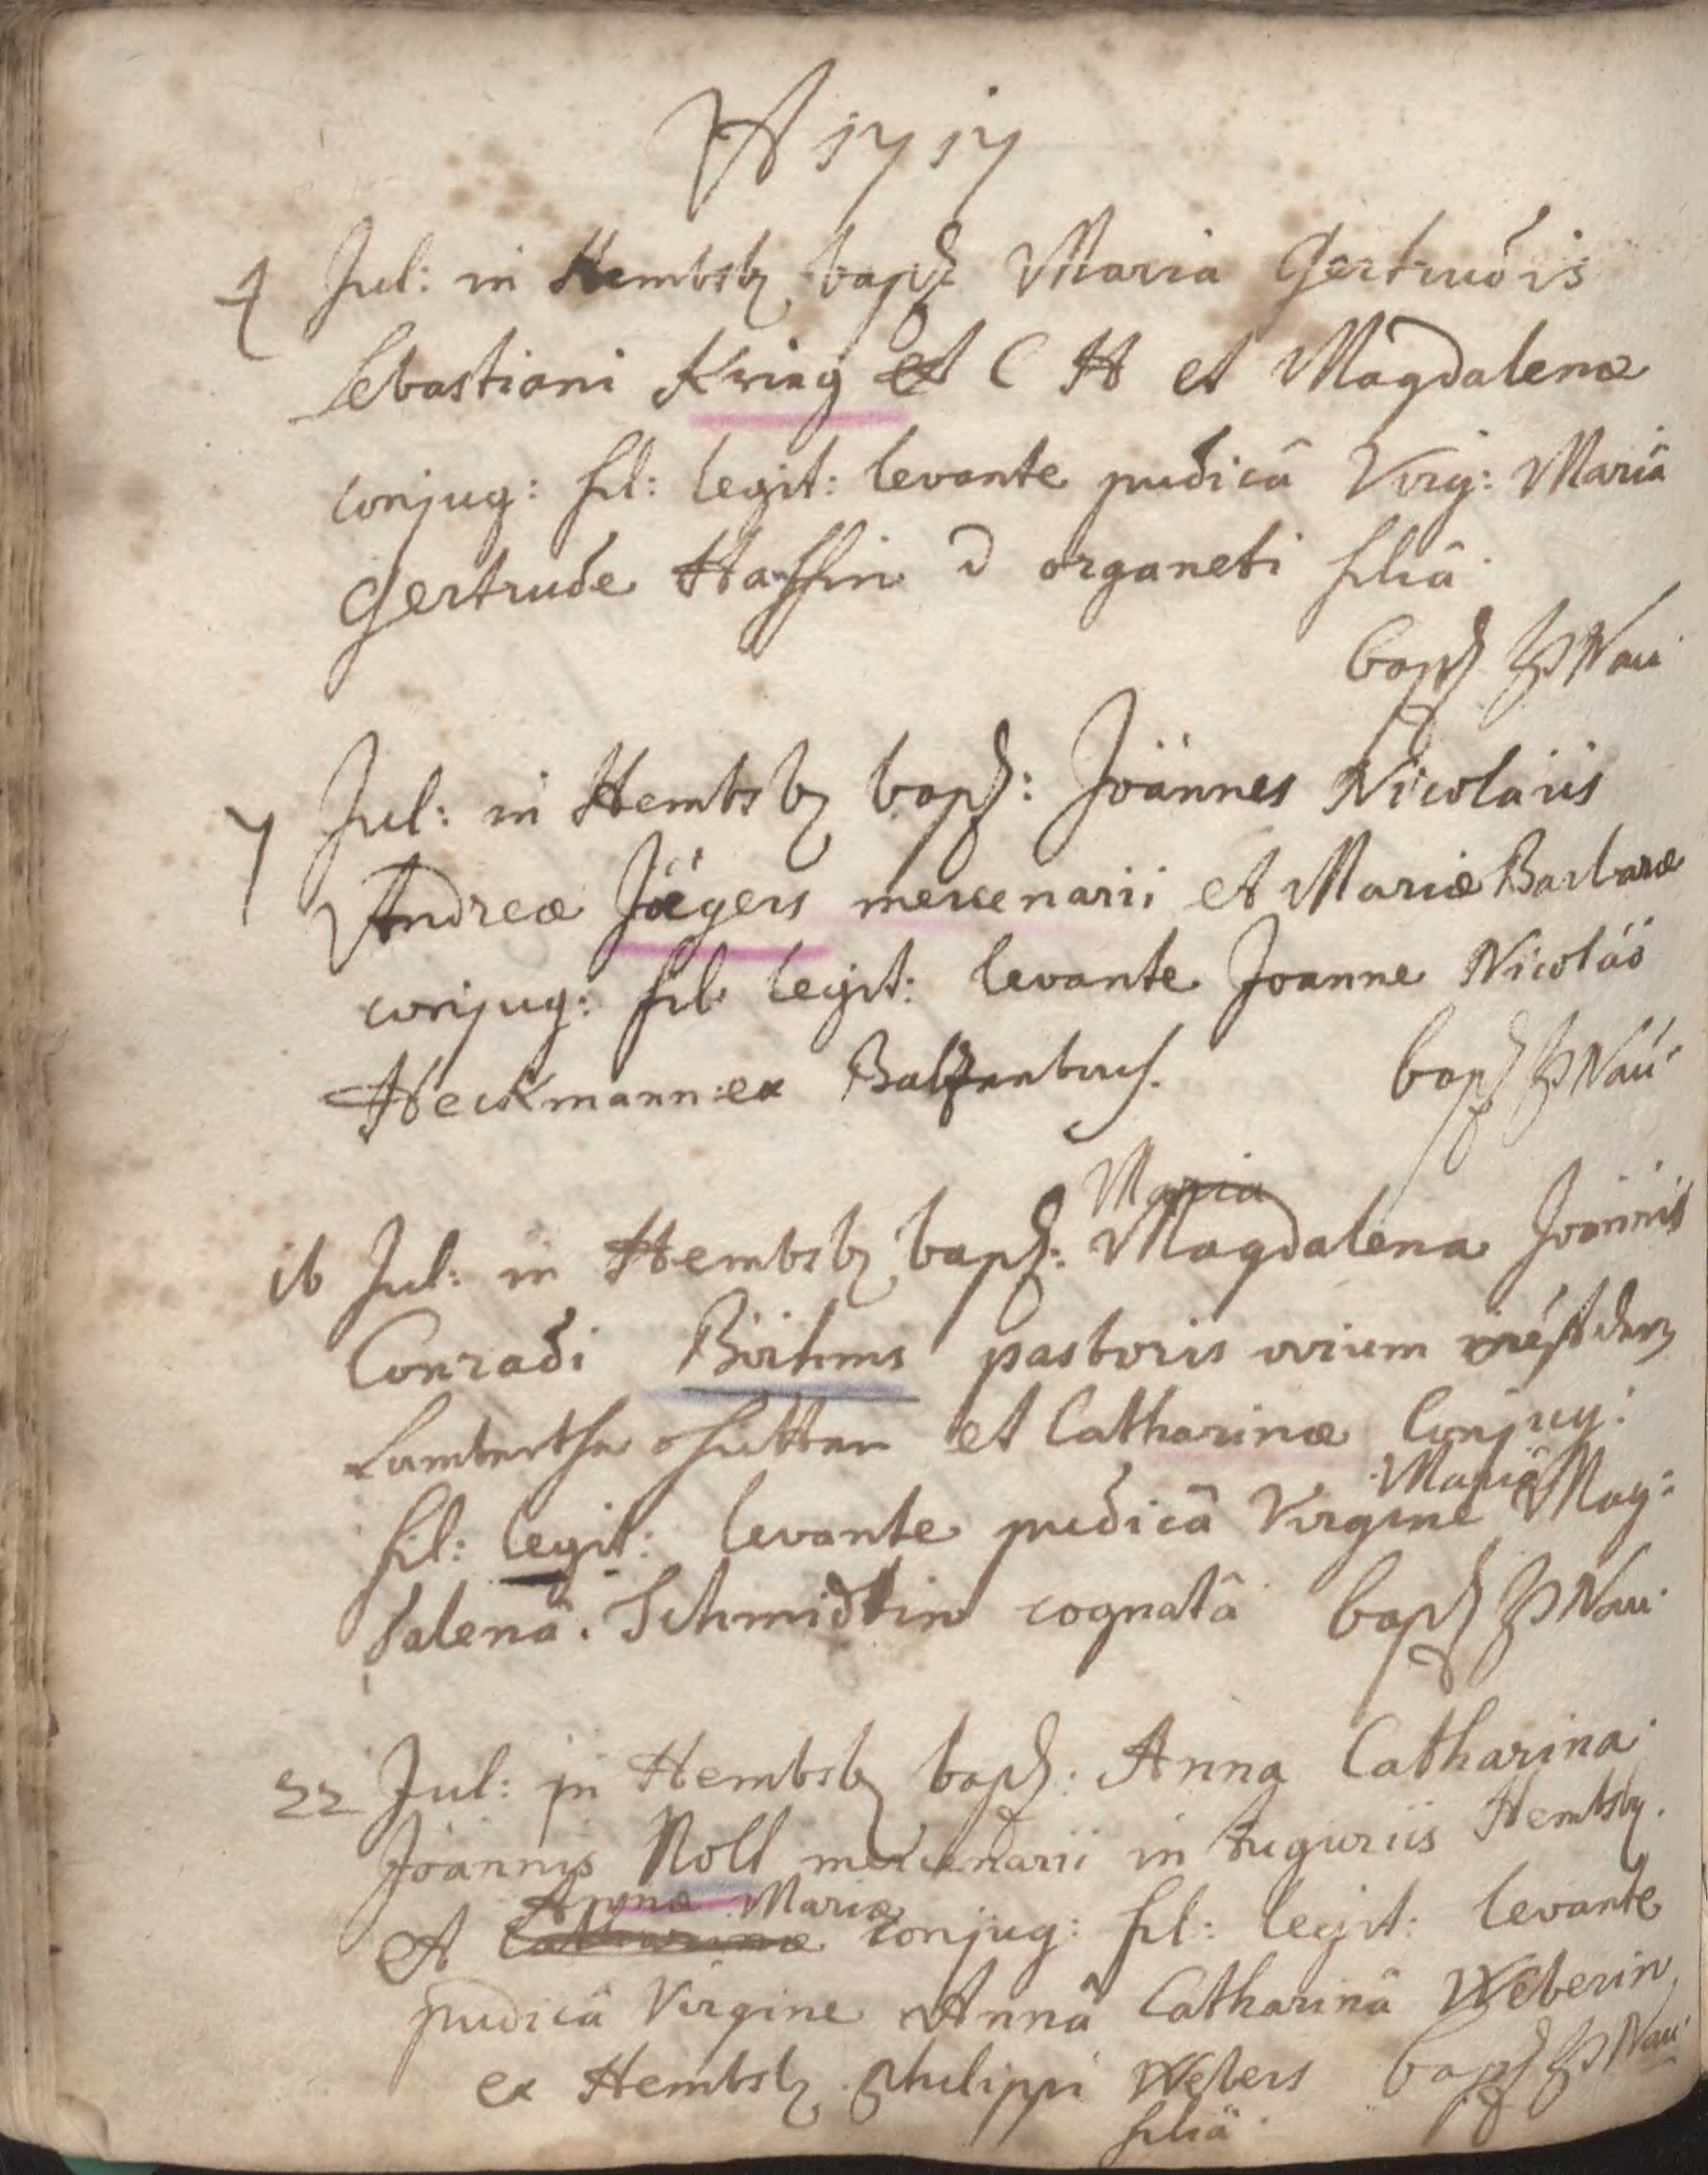 A 1717
4 Jul: in Hembsb bapt: Maria Gertrudis
Sebastiani Kring et C H et Magdalenæ
conjug: fil: legit: levante pudicâ Virg: Mariâ
Gertrude Hassin D organeti filiâ
bapt HP Nau
7 Jul: in Hembsb bapt: Joannes Nicolaus
Andreæ Jägers mercenarii et Mariæ Barbaræ
conjug: fil legit: levante Joanne Nicolao
Heckmann ex
bapt HP Nau
16 Jul: in Hembsb bapt: Maria Magdalena Joannis
Conradi Böhms pastoris ovium
et Catharinæ Conjug:
fil: legit: levante pudicâ Virgine Mariâ Mag=
dalenâ Schmidtin cognatâ bapt HP Nau
22 Jul: in Hembsb bapt: Anna Catharina
Joannis Noll mercenarii in tuguriis Hembsb.
Annæ Mariæ
et Catharinæ conjug: fil: legit: levante
pudicâ Virgine Annâ Catharinâ Weberin
ex Hembsb Philippi Webers bapt HP Nau
filiâ